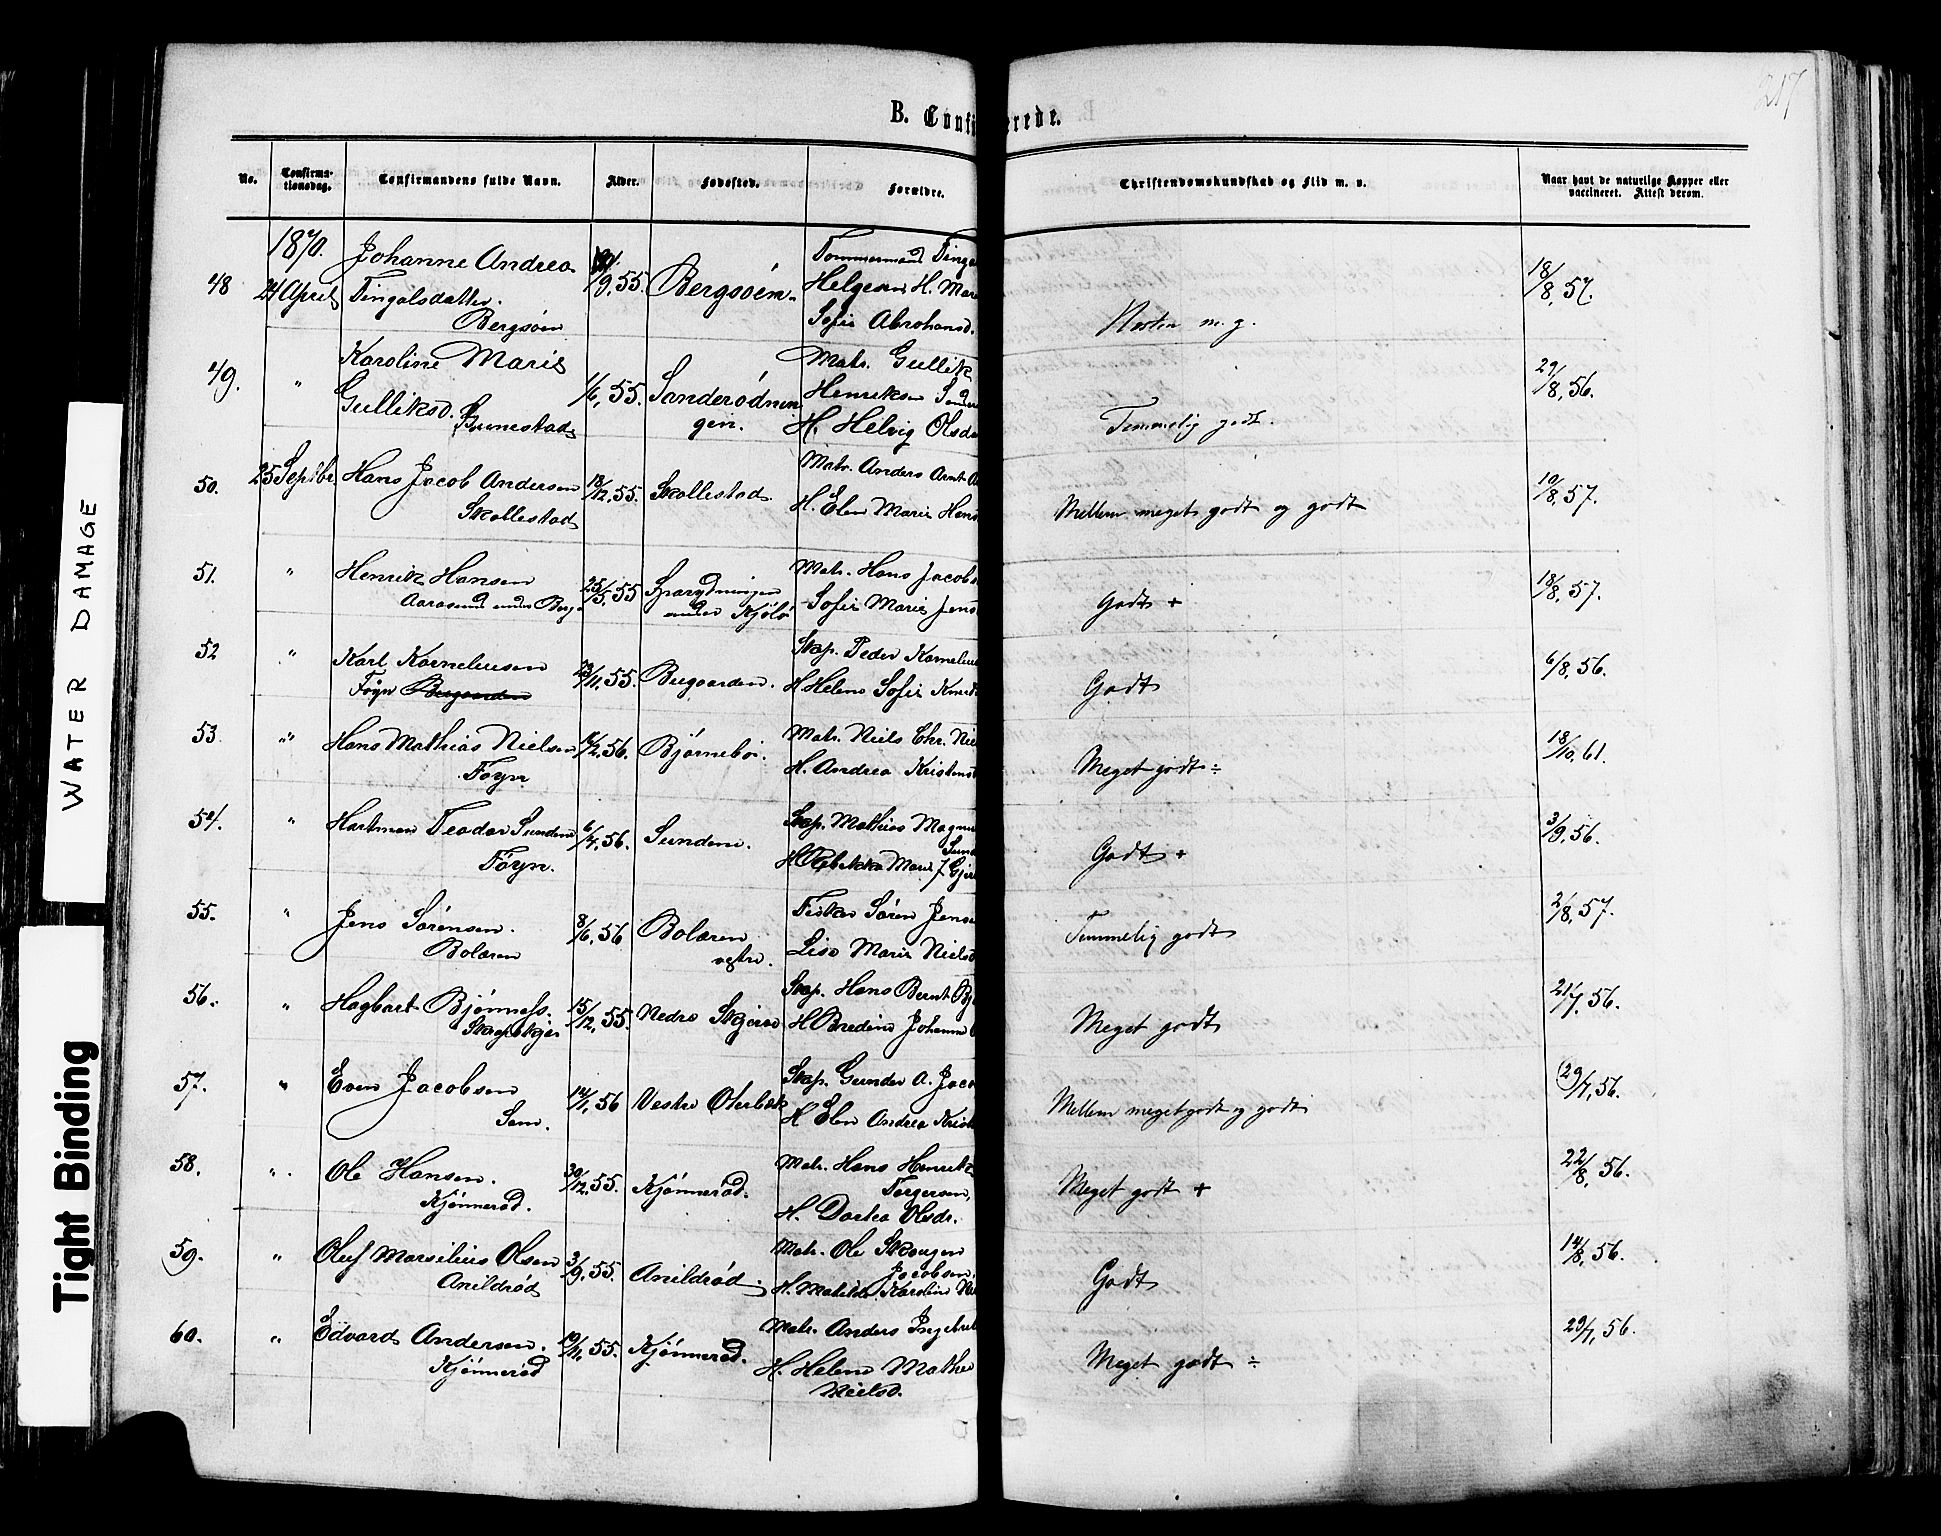 WATER DAMAGE
Tight Binding
217
B. Confi erede.
No.
Confirma-
tionsdag.
Confirmandens fulde Navn.
Alder.
Fødested.
Forældre.
Christendomskundskab og Flid m. v.
Naar havt de naturlige Kopper eller
vaccineret. Attest derom.
1870.
48 24 April Johanne Andrea Tingalsdatter. Bergsöen /9, 55. Bergsöen. Tømmermand Tinga
Helgesen H. Mar
Sofie Abrahamsd. Næsten m. g. 18/8, 57.
49. " Karoline Marie Gulliksd. 1/6, 55. Sanderødnin
gen. Matr. Gullik
Henriksen
H. Helvig Olsd Temmelig godt. 29/8, 56.
50. 25 Septbr Hans Jacob Andersen
Skallestad 18/12, 55. Skallestad. Matr. Anders Arnt
H. Elen Marie Hans Mellem meget godt og godt 10/8, 57.
51. " Henrik Hansen
Aarøsund under Berg 25/5, 55 under Kjölö Matr. Hans Jacob
Sofie Marie Jens Godt + 18/8, 57.
52 " Karl Korneliusen
Föyn /11, 55. Buegaarden. Skap. Peder Kornelius
H Helene Sofie Knud Godt 6/8, 56.
53. " Hans Mathias Nielsen
Föyn. /2, 56. Björnebö. Matr. Niels Chr. Nie
H. Andrea Kristens Meget godt ÷ 18/10, 61.
54. " Hartman Teodor Sundene
Föyn. 6/4, 56. Sundene. Skap. Mathias Magnu
Sund
H Rebekka Marie J Gjer Godt + 3/9, 56.
55. " Jens Sörensen.
Bolæren 8/6, 56 Bolæren
vestre. Fisker Sören Jens
Lise Marie Niels Temmelig godt 2/8, 57.
56. " Hagbart Björnness. 15/12, 55. Nedre Skjerve Skap. Hans Bernt Bj
H Bredine Johanne Meget godt 21/7, 56.
57. " Even Jacobsen
Sem. 14/1, 56 Vestre Oterbæk Skap. Gunder A. Jaco
H Elen Andrea Krist Mellem meget godt og godt 29/7, 56.
58. " Ole Hansen.
Kjönneröd. 30/12, 55. Kjönneröd. Matr. Hans Henrik
Torgersen,
H. Dortea Olsdr. Meget godt + 22/8, 56.
59. " Oluf Marsilius Olsen
Anildröd 3/9, 55. Anildröd. Matr. Ole Skaugen
Jacobsen.
H. Matilde Karoline Ni Godt 14/8, 56.
60. " Edvard Andersen.
Kjönneröd 19/11, 55. Kjönneröd. Matr. Anders Ingebret
H. Helene Mathea
Nielsd. Meget godt ÷ 29/7, 56.